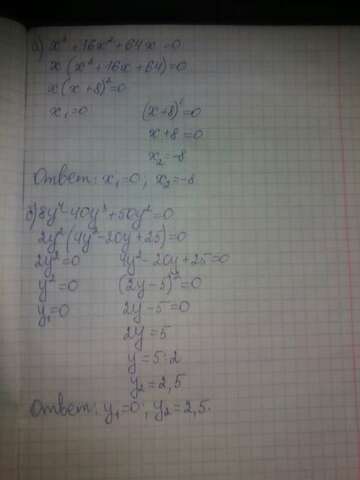 а) x³ + 16x² + 64x = 0
x (x² + 16x + 64) = 0
x (x + 8)² = 0
x₁ = 0 (x + 8)² = 0
x + 8 = 0
x₂ = -8
Ответ: x₁ = 0, x₂ = -8
б) 8y⁴ - 40y³ + 50y² = 0
2y² (4y² - 20y + 25) = 0
2y² = 0 4y² - 20y + 25 = 0
y² = 0 (2y - 5)² = 0
y₁ = 0 2y - 5 = 0
2y = 5
y = 5 : 2
y₂ = 2,5
Ответ: y₁ = 0, y₂ = 2,5.